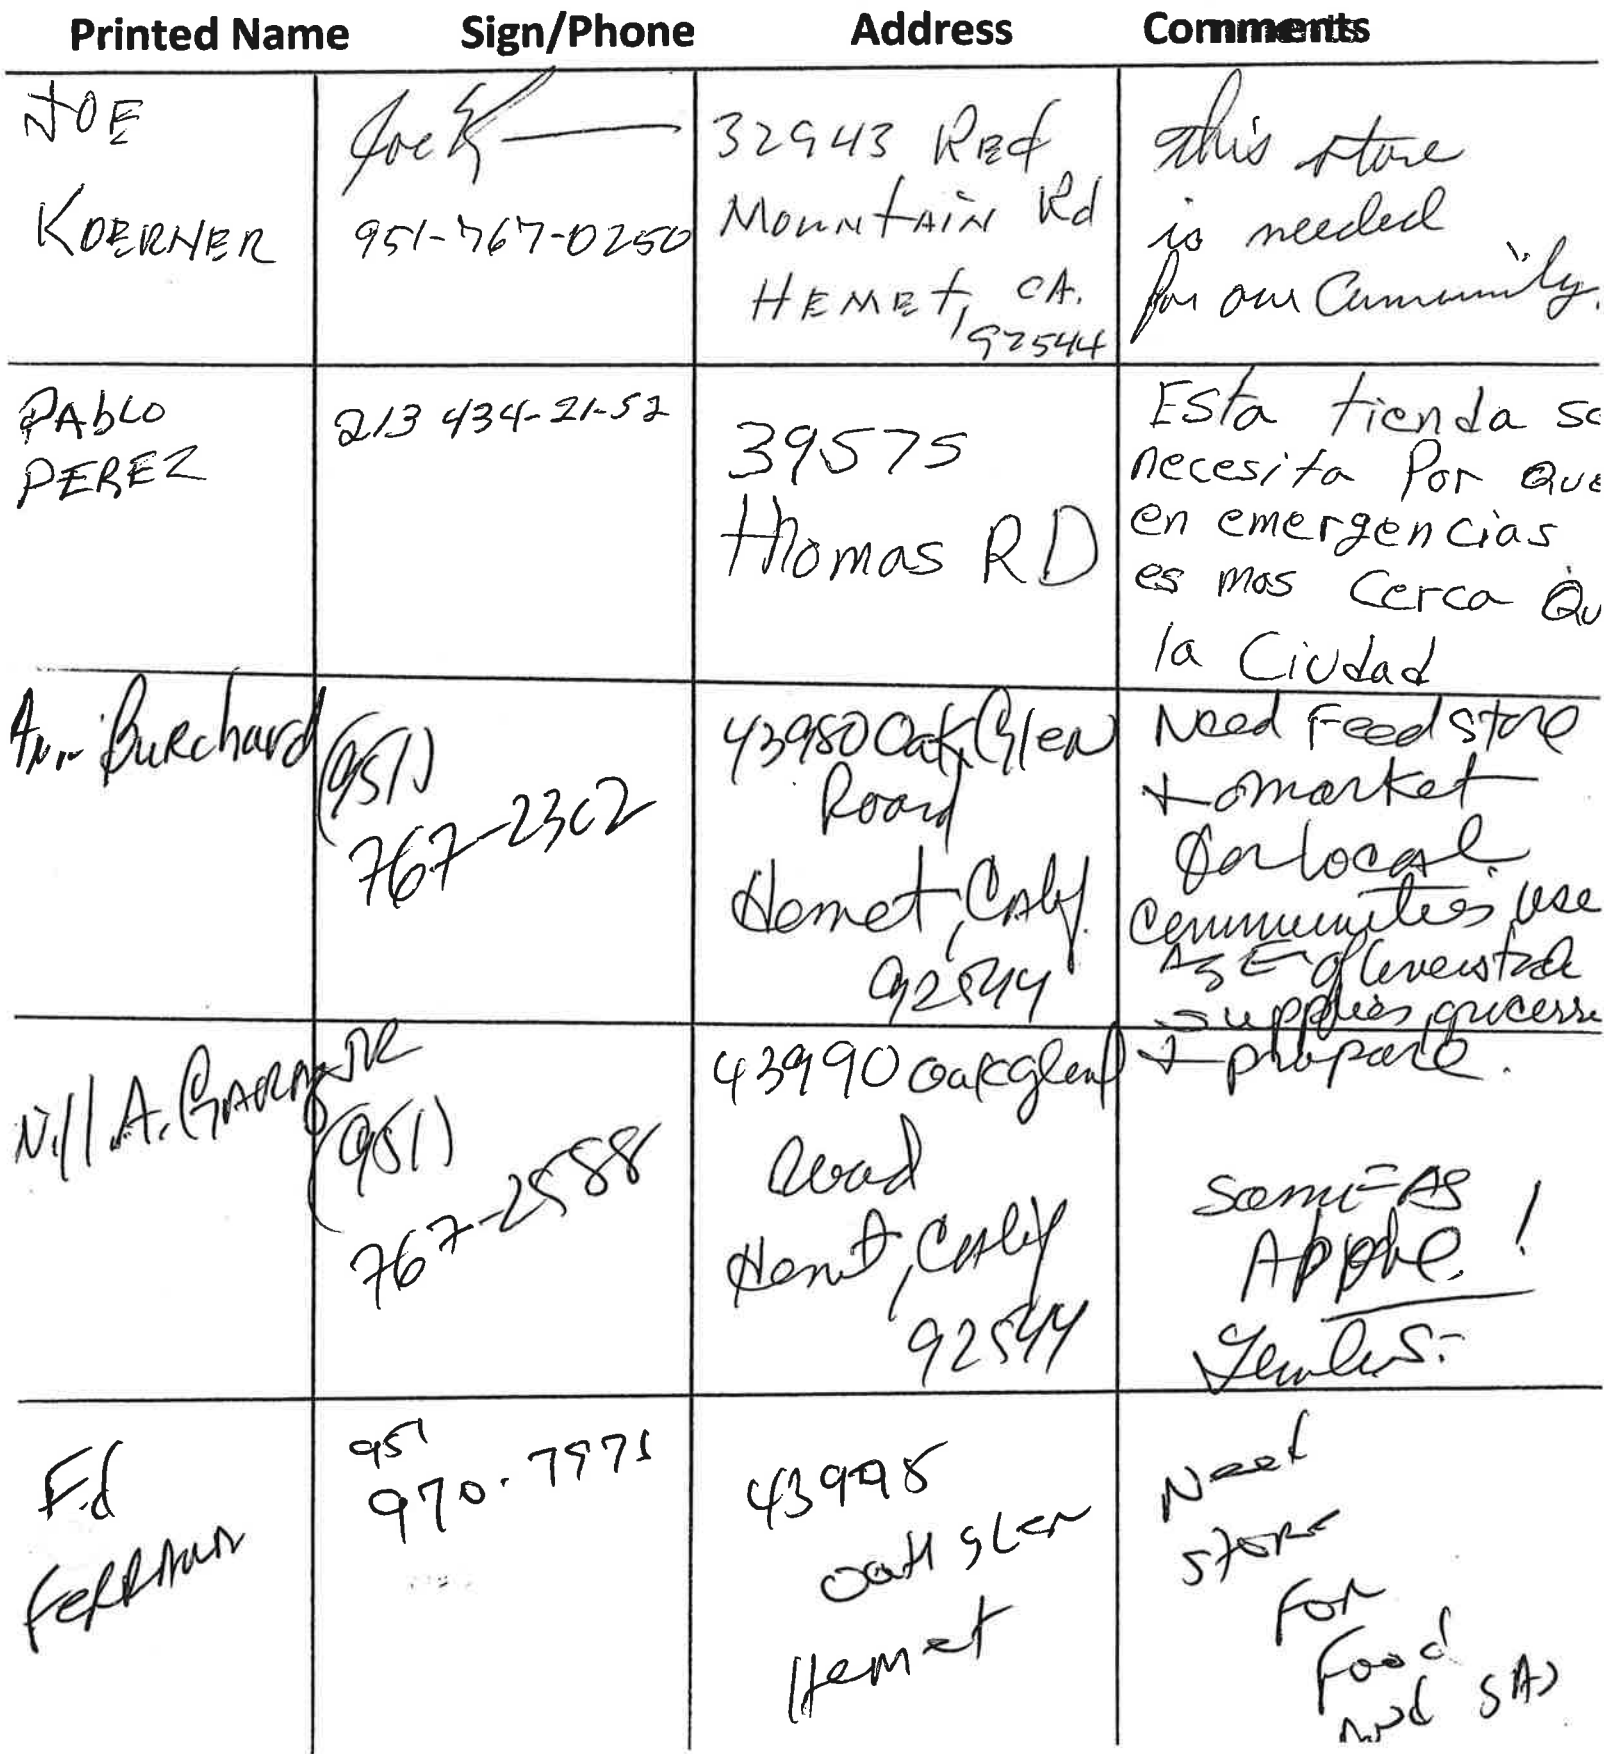 Printed Name Sign/Phone Address Comments
JOE
KOERNER
Joe K
951-767-0250
32943 Red
Mountain Rd
Hemet, CA.
92544
this store
is needed
for our Cummunity.
PAbLO
PEREZ
213 434-21-52
39575
Thomas RD
Esta tienda se
necesita Por que
en emergencias
es mas cerca Qu
la Ciudad
Ann Burchard
(951)
767-2302
43980 Oak Glen
Road
Hemet, Calif.
92544
Need Feed store
+ market
for local
communities, use
of
supplies,
+ propane.
Nill A. JR
(951)
767-2588
43990 Oak Glen
Road
Hemet, Calif
92544
Same As
!
Ed
951
970.7971
43995
Oak Glen
Hemet
Need
store
For
Food
and gas